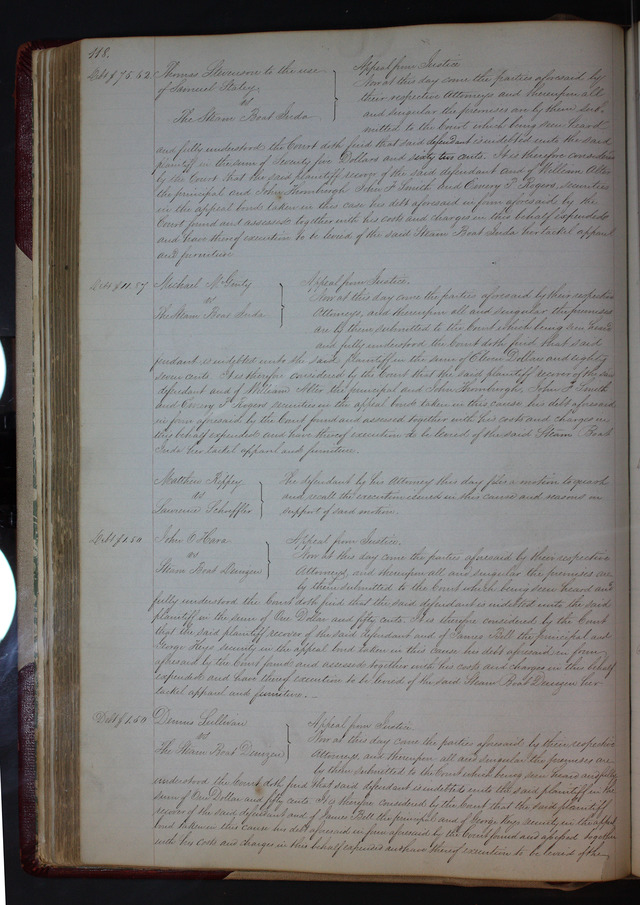 118.
Debt $75.62 Thomas Stevenson to the use Appeal from Justice
of Samuel Staley Now at this day come the parties aforesaid by
vs their respective Attorneys and thereupon all
The Steam Boat Inda and singular the premises are by them sub-
mitted to the Court which being seen heard
and fully understood the Court doth find that said defendant is indebted unto the said
plaintiff in the sum of Seventy five Dollars and sixty two cents. It is therefore considered
by the Court that the said plaintiff recover of the said defendant and of William Alter
the principal and John Thornburgh John F. Smith and Emery P. Rogers securities
in the appeal bond taken in this case his debt aforesaid in form aforesaid by the
Court found and assessed together with his costs and charges in this behalf expended
and have thereof execution to be levied of the said Steam Boat Inda her tackel apparel
and furniture
Debt $11.87 Michael McGinty Appeal from Justice.
vs Now at this day come the parties aforesaid by their respective
The Steam Boat Inda Attorneys, and thereupon all and singular the premises
are by them submitted to the Court which being seen heard
and fully understood the Court doth find that said
fendant is indebted unto the said plaintiff in the sum of Eleven Dollars and eighty
seven cents. It is therefore considered by the Court that the said plaintiff recover of the said
defendant and of William Alter the principal and John Thornburgh John F. Smith
and Emery P. Rogers securities in the appeal bond taken in this cause his debt aforesaid
in form aforesaid by the Court found and assessed together with his costs and charges in
this behalf expended and have thereof execution to be levied of the said Steam Boat
Inda her tackel apparel and furniture.
Matthew Rippey The defendant by his Attorney this day files a motion to quash
vs and recall the execution issued in this cause and reasons in
Lawrence Schoffler support of said motion.
Debt $1.50 John O Hara Appeal from Justice.
vs Now at this day come the parties aforesaid by their respective
Steam Boat Attorneys, and thereupon all and singular the premises are
by them submitted to the Court which being seen heard and
fully understood the Court doth find that the said defendant is indebted unto the said
plaintiff in the sum of One Dollar and fifty cents. It is therefore considered by the Court
that the said plaintiff recover of the said defendant and of James Ball the principal and
George Keys security in the appeal bond taken in this cause his debt aforesaid in form
aforesaid by the Court found and assessed together with his costs and charges in this behalf
expended and have thereof execution to be levied of the said Steam Boat her
tackel apparel and furniture.
Debt $1.50 Dennis Sullivan Appeal from Justice
vs Now at this day come the parties aforesaid by their respective
The Steam Boat Attorneys, and thereupon all and singular the premises are
by them submitted to the Court which being seen heard and fully
understood the Court doth find that said defendant is indebted unto the said plaintiff in the
sum of One Dollar and fifty cents. It is therefore considered by the Court that the said plaintiff
recover of the said defendant and of James Ball the principal and of George Keys security in the appeal
bond taken in this cause his debt aforesaid in form aforesaid by the Court found and assessed together
with his costs and charges in this behalf expended and have thereof execution to be levied of the